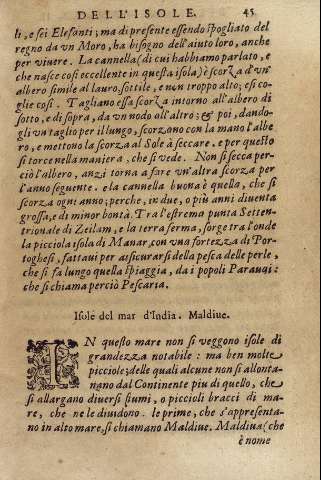 DELL'ISOLE. 45
li, e sei Elefanti; ma di presente essendo spogliato del
regno da vn Moro, ha bisogno dell'aiuto loro, anche
per viuere. La cannella (di cui habbiamo parlato, e
che nasce così eccellente in questa isola) è scorza d'vn'
albero simile al lauro, sottile, e non troppo alto; e si co-
glie così. Tagliano essa scorza intorno all'albero di
sotto, e di sopra, da vn nodo all'altro; & poi, dando-
gli vn taglio per il lungo, scorzono con la mano l'albe
ro, e mettono la scorza al Sole à seccare. e per questo
si torce nella maniera, che si vede. Non si secca per-
ciò l'albero, anzi torna a fare vn'altra scorza per
l'anno seguente. e la cannella buona è quella, che si
si scorza ogni anno; perche, in due, o più anni diuenta
grossa, e di minor bontà. Tra l'estrema punta Setten-
trionale di Zeilam, e la terra ferma, sorge tra l'onde
la picciola isola di Manar, con vna fortezza di Por-
toghesi, fattaui per assicurarsi della pesca delle perle,
che si fa lungo quella spiaggia, da i popoli Parauqi:
che si chiama perciò Pescaria.
Isole del mar d'India. Maldiue.
IN questo mare non si veggono isole di
grandezza notabile: ma ben molte
picciole; delle quali alcune non si allonta-
nano dal Continente piu di quello, che
si allargano diuersi fiumi, o piccioli bracci di ma-
re, che ne le diuidono. le prime, che s'appresenta-
no in alto mare, si chiamano Maldiue. Maldiua (che
è nome